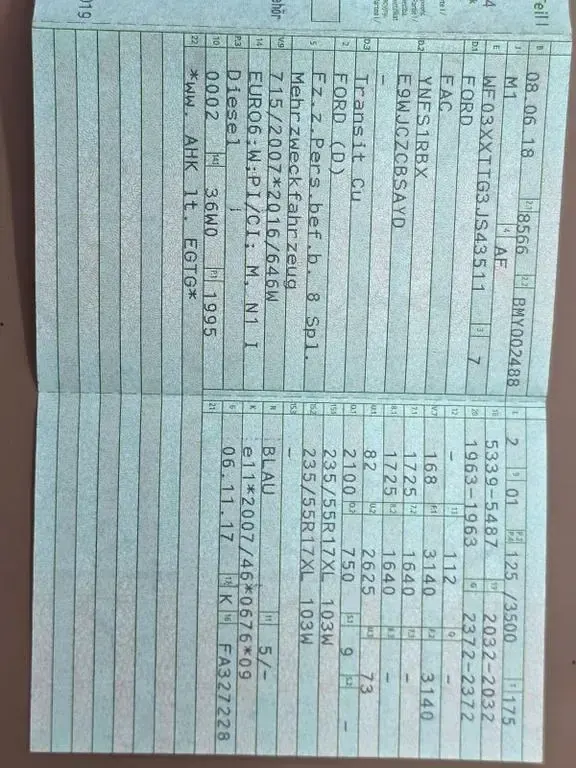 eil I
B 08.06.18 2.1 8566 2.2 BMY002488
J M1 4 AF
E WF03XXTTG3JS43511 3 7
D.1 FORD
D.2 FAC
YNFS1RBX
E9WJCZCBSAYD
-
D.3 Transit Cu
2 FORD (D)
5 Fz.z.Pers.bef.b. 8 Spl.
Mehrzweckfahrzeug
V.9 715/2007*2016/646W
14 EURO6;W;PI/CI; M, N1 I
P.3 Diesel
10 0002 14.1 36W0 P.1 1995
22 *ww. AHK lt. EGTG*
L 2 9 01 P.2 P.4 125 /3500 T 175
18 5339-5487 19 2032-2032
20 1963-1963 G 2372-2372
12 - 13 112 Q -
V.7 168 F.1 3140 F.2 3140
7.1 1725 7.2 1640 7.3 -
8.1 1725 8.2 1640 8.3 -
U.1 82 U.2 2625 U.3 73
O.1 2100 O.2 750 S.1 9 S.2 -
15.1 235/55R17XL 103W
15.2 235/55R17XL 103W
15.3 -
R BLAU 11 5/-
K e11*2007/46*0676*09
6 06.11.17 17 K 16 FA327228
21